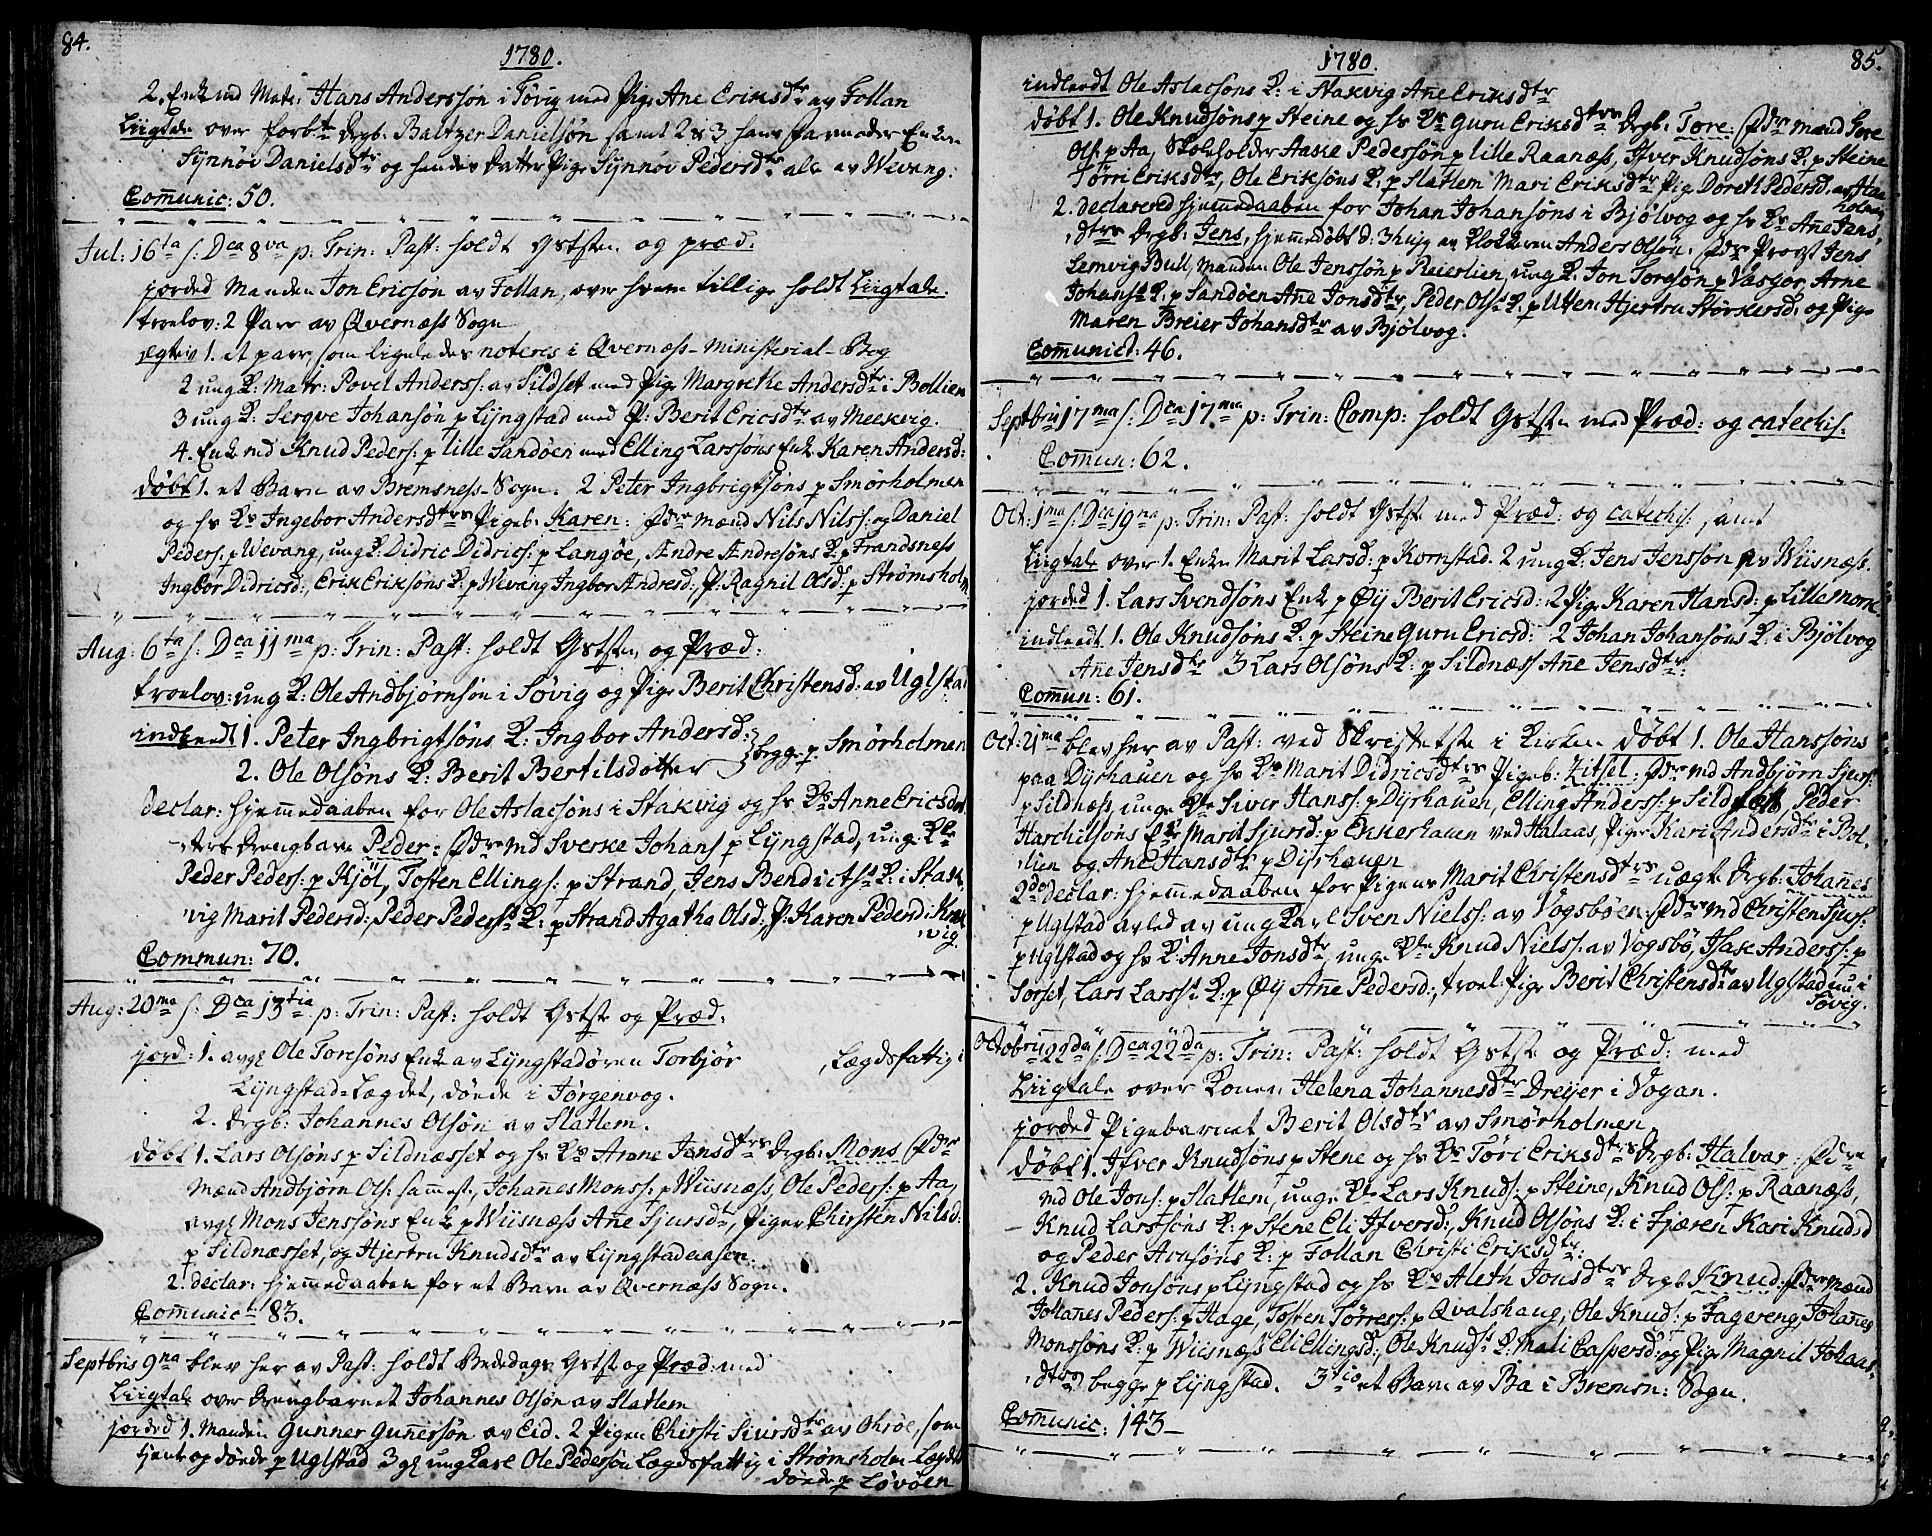 84.
1780.
2. Enkemd Mats: Hans Anderssøn i Søvig med Pige Ane Eriksdtr av Follan
Liigtale over forbte Drgb. Baltzer Danielsøn samt 2 & 3 hans Farmoder Enken
Sÿnnøv Danielsdtr og hendes Datter Pige Sÿnnøv Pedersdtr alle av Wevang.
Comunic: 50.
Jul: 16ta s: Dca 8va p: Trin: Past: holdt Gstste og præd:
jorded Manden Jon Ericsøn av Follan, over hvem tillige holdt Liigtale.
troelov: 2 Parr av Qvernæss Sogn
egtev 1. et parr, som ligeledes noteres i Qvernæss-Ministerial-Bog
2 ung K: Matr: Povel Anderss: av Sildset med Pige Margrethe Andersdtr i Bollien
3 ung K: Sergve Johansøn p Lÿngstad med P: Berit Ericsdtr av Meekvig.
4. Enkemd Knud Peders: p lille Sandøen med Elling Larssøns Enke Karen Andersd:
døbt 1. et Barn av Bremsness-Sogn. 2 Peter Ingbrigtsøns p Smørholmen
og hs Ks Ingebor Andersdtrs Pigeb: Karen: Fdre mænd Nils Nilss: og Daniel
Peders: p Wevang, ung K: Didric Didrics: p Langøe, Andre Andresøns K: p Frandsness
Ingbor Didricsd:, Erik Eriksøns K: p Wevang Ingbor Andresd:, P: Ragnil Olsd: p Strømsholm
Aug: 6ta s: Dca 11ma p: Trin: Past: holdt Gstste og Præd:
troelov: ung K: Ole Andbjørnsøn i Søvig og Pige Berit Christensd: av Uglstad
indleedt 1. Peter Ingbrigtsøns K: Ingbor Andersd: } begge p Smørholmen
2. Ole Olsøns K: Berit Bertilsdotter
declar: hjemmedaaben for Ole Aslacsøns i Stakvig og hs Ks Anne Ericsdat
ters Drengbarn Peder: Fdre md Sverke Johans p Lÿngstad, unge Kle
Peder Peders: p Kjøl, Tosten Ellings: p Strand, Jens Bendictss K: i Stak
vig Marit Pedersd:, Peder Pederss K: p Strand Agatha Olsd:, P: Karen Pedersd: Knik
vig.
Commun: 70.
Aug: 20ma s: Dca 13tia p: Trin: Past: holdt Gstste og Præd:
jord: 1. avgl Ole Toresøns Enke av Lÿngstadøren Torbjør , Lægdsfattig i
Lÿngstad-Lægdet, døede i Jørgenvog.
2. Drgb: Johannes Olsøn av Slatlem.
døbt 1. Lars Olsøns p Sildnæsset og hs Ks Anne Jensdtrs Drgb: Mons Fdre
Mænd Andbjørn Ols: sammest, Johanes Monss: p Wiisnæss, Ole Peders: p Aa,
avgl Mons Jenssøns Enke p Wiisnæss Ane Sjursdtr, Piger Chirsten Nilsd:
p Sildnæsset, og Hjertru Knudsdtr av Lÿngstadaasen.
2. declar: hjemmedaaben for et Barn av Qvernæss Sogn.
Comunict: 83.
Septbris 9na blev her av Past: holdt Bededags Gstste og Præd: med
Liigtale over Drengbarnet Johannes Olsøn av Slatlem
jorded 1. Manden Gunner Gunersøn av Eid. 2 Pigen Chirsti Siursdtr av Ohrøe, som
tjente og døede p Uglstad 3 gl ung Karl Ole Pedersøn Lægdsfattig i Strømsholm Lægdet
døede p Løvøen
85.
1780.
indleedt Ole Aslacsøns K: i Stakvig Ane Eriksdtr
døbt 1. Ole Knudsøns p Steine og hs Ks Guru Eriksdtrs Drgb: Tore: Fdre mænd Tore
Ols: p Aa, Skoleholder Aase Pedersøn p lille Raanæss, Ifver Knudsøns K: p Steine
Tørri Eriksdtr, Ole Eriksøns K: p Slatlem Mari Eriksdtr Pig Doreth Pedersd: av Haa
holmen
2. declarered hjemmedaaben for Johan Johansøns i Bjølvog og hs Ks Ane Jens
dtrs Drgb: Jens, hjemmedøbt d: 3 hujg av Klokkeren Anders Olsøn. Fdre Provst Jens
Lemvig Bull, Manden Ole Jenssøn p Reierlien, ung K: Jon Toresøn p Vasgor, Arne
Johanss K: p Sandøen Ane Jonsdtr, Peder Olss K: p Uttem Hjertru Størkersd: og Pige
Maren Breier Johansdtr av Bjølvog.
Comunict: 46.
Septbris 17ma s: Dca 17ma p: Trin: Comp: holdt Gstste med Præd: og catechis:
Commun: 62.
Oct: 1ma s: Dca 19na p: Trin: Past: holdt Gstste med Præd: og catechis: samt
Liigtale over 1. Enken Marit Larsd: p Kornstad. 2 ung K: Jens Jenssøn av Wiisnæss.
jorded 1. Lars Svendsøns Enke p Øÿ Berit Ericsd: 2 Pige Karen Hansd: p Lillemork
indleedt 1. Ole Knudsøns K: p Steine Guru Ericsd: 2 Johan Johansøns K: i Bjølvog
Ane Jensdtr 3 Lars Olsøns K: p Sildnæss Ane Jensdtr.
Commun: 61.
Oct: 21ma blev her av Past: ved Skriftetste i Kirken døbt 1. Ole Hanssøns
paa Dÿrhauen og hs Ks Marit Didricsdtrs Pigeb: Zitsel: Fdre md Andbjørn Sjurs:
p Sildnæss, unge Kle Siver Hanss: p Dÿrhauen, Elling Anderss: p Sildset, Peder
Harchilsøns Eke Marit Sjursd: p Enkerhauen ved Halaas, Piger Kari Andersdtr i Bol
lien og Ane Hansdtr p Dÿrhauen
2do declar: hjemmedaaben for Pigens Marit Christensdtrs uægte Drgb: Johanes
p Uglstad avled av ung Karl Sven Nielss: av Vogsbøen: Fdre md Christen Sjurs:
p Uglstad og hs K: Anne Jonsdtr, unge Kle Knud Nielss: av Vogsbø, Isak Anderss: p
Sorset, Lars Larss K: p Øÿ Ane Pedersd:, troel: Pige Berit Christensdtr av Uglstad nu i
Søvig.
Octobris 22da s: Dca 22da p: Trin: Past: holdt Gstste og Præd: med
Liigtale over Konen Helena Johannesdtr Dreÿer i Vogan.
jorded Pigebarnet Berit Olsdtr av Smørholmen
døbt 1. Ifver Knudsøns p Stene og hs Ks Tøri Eriksdtrs Drgb: Halvar: Fdre
md Ole Jons: p Slatlem, unge Kle Lars Knuds: p Steine, Knud Ols: p Raanæss,
Knud Larssøns K: p Stene Eli Ifversd:, Knud Olsøns K: i Fjæren Kari Knudsd
og Peder Arnsøns K: p Follan Christi Eriksdtr:
2. Knud Jonsøns p Lÿngstad og hs Ks Aleth Jonsdtrs Drgb: Knud: Fdre mænd
Johanes Peders: p Hage, Tosten Tørress: p Qvalshaug, Ole Knuds: p Fagereng, Johanes
Monssøns K: p Wiisnæss Eli Ellingsd:, Ole Knudss K: Mali Caspersd: og Pige Magnil Johans
dtr begge p Lÿngstad. 3tio et Barn av Ba i Bremsn: Sogn.
Comunic: 143